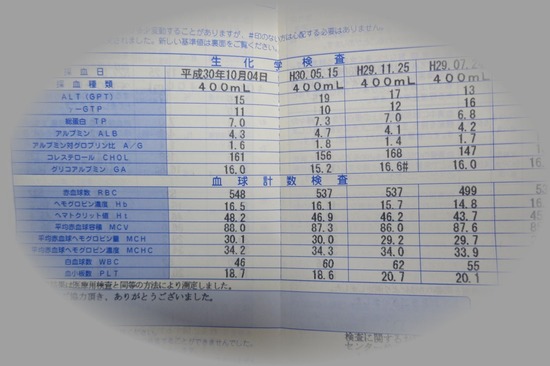 動することがありますが、#印のない方は心配する必要はありません。
ました。新しい基準値は裏面をご覧ください。
生化学検査
採血日 平成30年10月04日 H30.05.15 H29.11.25 H29.07.2
採血種類 400mL 400mL 400mL 400mL
ALT(GPT) 15 19 17 13
γ-GTP 11 10 12 16
総蛋白 TP 7.0 7.3 7.0 6.8
アルブミン ALB 4.3 4.7 4.1 4.2
アルブミン対グロブリン比 A/G 1.6 1.8 1.4 1.7
コレステロール CHOL 161 156 168 147
グリコアルブミン GA 16.0 15.2 16.6# 16.0
血球計数検査
赤血球数 RBC 548 537 537 499
ヘモグロビン濃度 Hb 16.5 16.1 15.7 14.8
ヘマトクリット値 Ht 48.2 46.9 46.2 43.7
平均赤血球容積 MCV 88.0 87.3 86.0 87.6
平均赤血球ヘモグロビン量 MCH 30.1 30.0 29.2 29.7
平均赤血球ヘモグロビン濃度 MCHC 34.2 34.3 34.0 33.9
白血球数 WBC 46 60 62 55
血小板数 PLT 18.7 18.6 20.7 20.1
は医療用検査と同等の方法により測定しました。
協力頂き、ありがとうございました。
検査に関する
センター